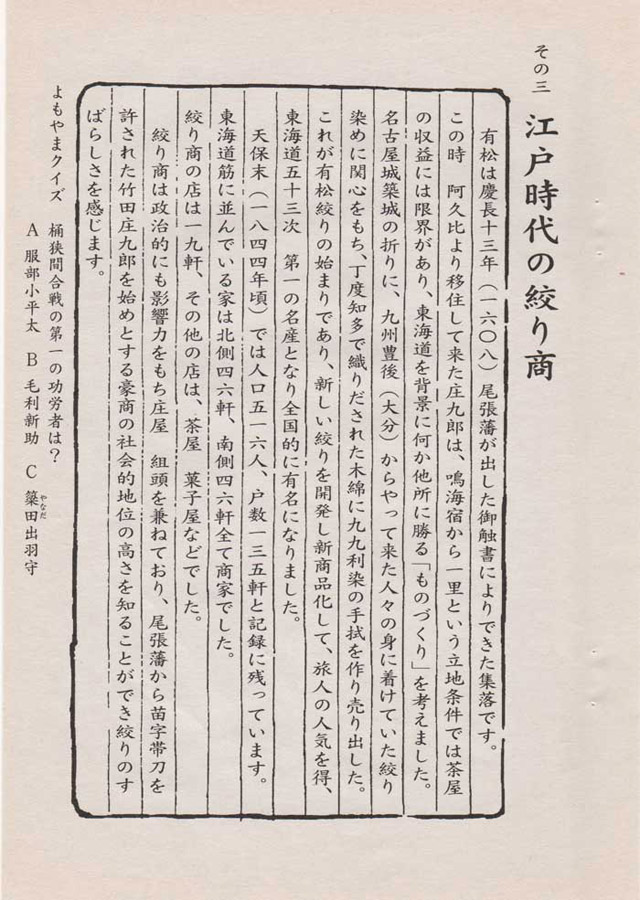 その三
江戸時代の絞り商
有松は慶長十三年（一六〇八）尾張藩が出した御触書によりできた集落です。
この時　阿久比より移住して来た庄九郎は、鳴海宿から一里という立地条件では茶屋
の収益には限界があり、東海道を背景に何か他所に勝る「ものづくり」を考えました。
名古屋城築城の折りに、九州豊後（大分）からやって来た人々の身に着けていた絞り
染めに関心をもち、丁度知多で織りだされた木綿に九九利染の手拭を作り売り出した。
これが有松絞りの始まりであり、新しい絞りを開発し新商品化して、旅人の人気を得、
東海道五十三次　第一の名産となり全国的に有名になりました。
天保末（一八四四年頃）では人口五一六人、戸数一三五軒と記録に残っています。
東海道筋に並んでいる家は北側四六軒、南側四六軒全て商家でした。
絞り商の店は一九軒、その他の店は、茶屋　菓子屋などでした。
絞り商は政治的にも影響力をもち庄屋　組頭を兼ねており、尾張藩から苗字帯刀を
許された竹田庄九郎を始めとする豪商の社会的地位の高さを知ることができ絞りのす
ばらしさを感じます。
よもやまクイズ　桶狭間合戦の第一の功労者は？
A 服部小平太　B 毛利新助　C 簗田出羽守
やなだ